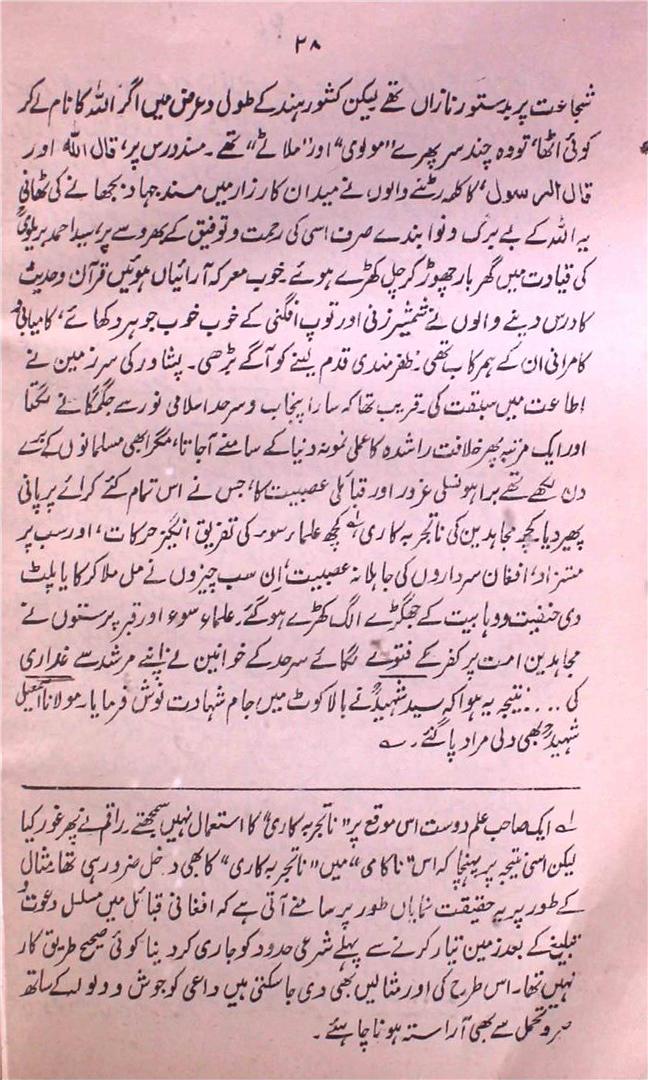 ۲۸
شجاعت پر بدستور نازاں تھے لیکن کشور ہند کے طول و عرض میں اگر اللہ کا نام لے کر
کوئی اٹھا، تو وہ چند سر پھرے "مولوی" اور "ملاٹے" تھے۔ مسند درس پر، قال اللہ اور
قال الرسول، کا کلمہ رٹنے والوں نے میدان کارزار میں مسند جہاد بچھانے کی ٹھانی
یہ اللہ کے بے برگ و نوا بندے صرف اسی کی رحمت و توفیق کے بھروسے پر، سید احمد بریلویؒ
کی قیادت میں گھر بار چھوڑ کر چل کھڑے ہوئے۔ خوب معرکہ آرائیاں ہوئیں قرآن و حدیث
کا درس دینے والوں نے شمشیر زنی اور توپ افگنی کے خوب خوب جوہر دکھائے، کامیابی و
کامرانی ان کے ہمرکاب تھی۔ ظفرمندی قدم لینے کو آگے بڑھی۔ پشاور کی سرزمین نے
اطاعت میں سبقت کی۔ قریب تھا کہ سارا پنجاب و سرحد اسلامی نور سے جگمگانے لگتا
اور ایک مرتبہ پھر خلافت راشدہ کا عملی نمونہ دنیا کے سامنے آجاتا، مگر ابھی مسلمانوں کے بُرے
دن لکھے تھے برا ہو نسلی غرور اور قبائلی عصبیت کا، جس نے اس تمام کئے کرائے پر پانی
پھیر دیا۔ کچھ مجاہدین کی ناتجربہ کاری، ۱؎ کچھ علماء سوء کی تفریق انگیز حرکات، اور سب پر
مستزاد، افغان سرداروں کی جاہلانہ عصبیت، اِن سب چیزوں نے مل ملا کر کایا پلٹ
دی حنفیت و وہابیت کے جھگڑے الگ کھڑے ہوگئے۔ علماء سوء اور قبر پرستوں نے
مجاہدین امت پر کفر کے فتوے لگائے سرحد کے خوانین نے اپنے مرشد سے غداری
کی .... نتیجہ یہ ہوا کہ سید شہیدؒ نے بالا کوٹ میں جام شہادت نوش فرمایا۔ مولانا اسمٰعیل
شہیدؒ بھی دلی مراد پا گئے۔
۱؎ ایک صاحب علم دوست اس موقع پر "ناتجربہ کاری" کا استعمال نہیں سمجھتے راقم نے پھر غور کیا
لیکن اسی نتیجہ پر پہنچا کہ اس "ناکامی" میں "ناتجربہ کاری" کا بھی دخل ضرور ہی تھا مثال
کے طور پر یہ حقیقت نمایاں طور پر سامنے آتی ہے کہ افغانی قبائل میں مسلسل دعوت و
تبلیغ کے بعد زمین تیار کرنے سے پہلے شرعی حدود کو جاری کر دینا کوئی صحیح طریق کار
نہیں تھا۔ اس طرح کی اور مثالیں بھی دی جاسکتی ہیں داعی کو جوش و ولولہ کے ساتھ
صبر و تحمل سے بھی آراستہ ہونا چاہئے۔